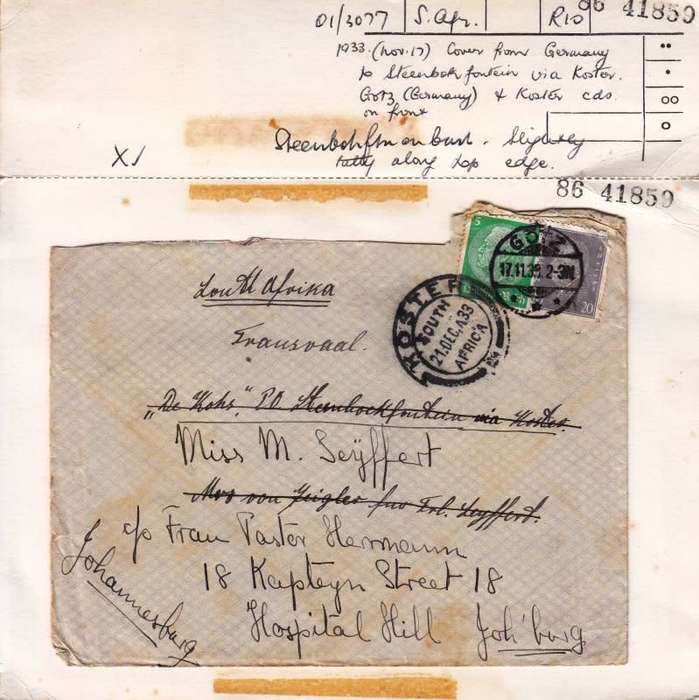 86 41859
01/3077 S. Afr. R10
1933. (Nov. 17) Cover from Germany
to Steenbokfontein via Koster.
Götz (Germany) & Koster cds
on front
Steenbokftn on back. Slightly
tatty along top edge.
X√
86 41859
5
GÖTZ
17.11.33.2-3N
20
KOSTER
SOUTH
21.DEC.A.33
AFRICA
South Afrika
Transvaal.
"De Hoks", P.O. Steenbockfontein via Koster
Miss M. Seÿffert
Mrs von Zeigler für Frl. Seyffert.
c/o Frau Pastor Herrmann
18 Kapteyn Street 18
Hospital Hill Joh'burg
Johannesburg